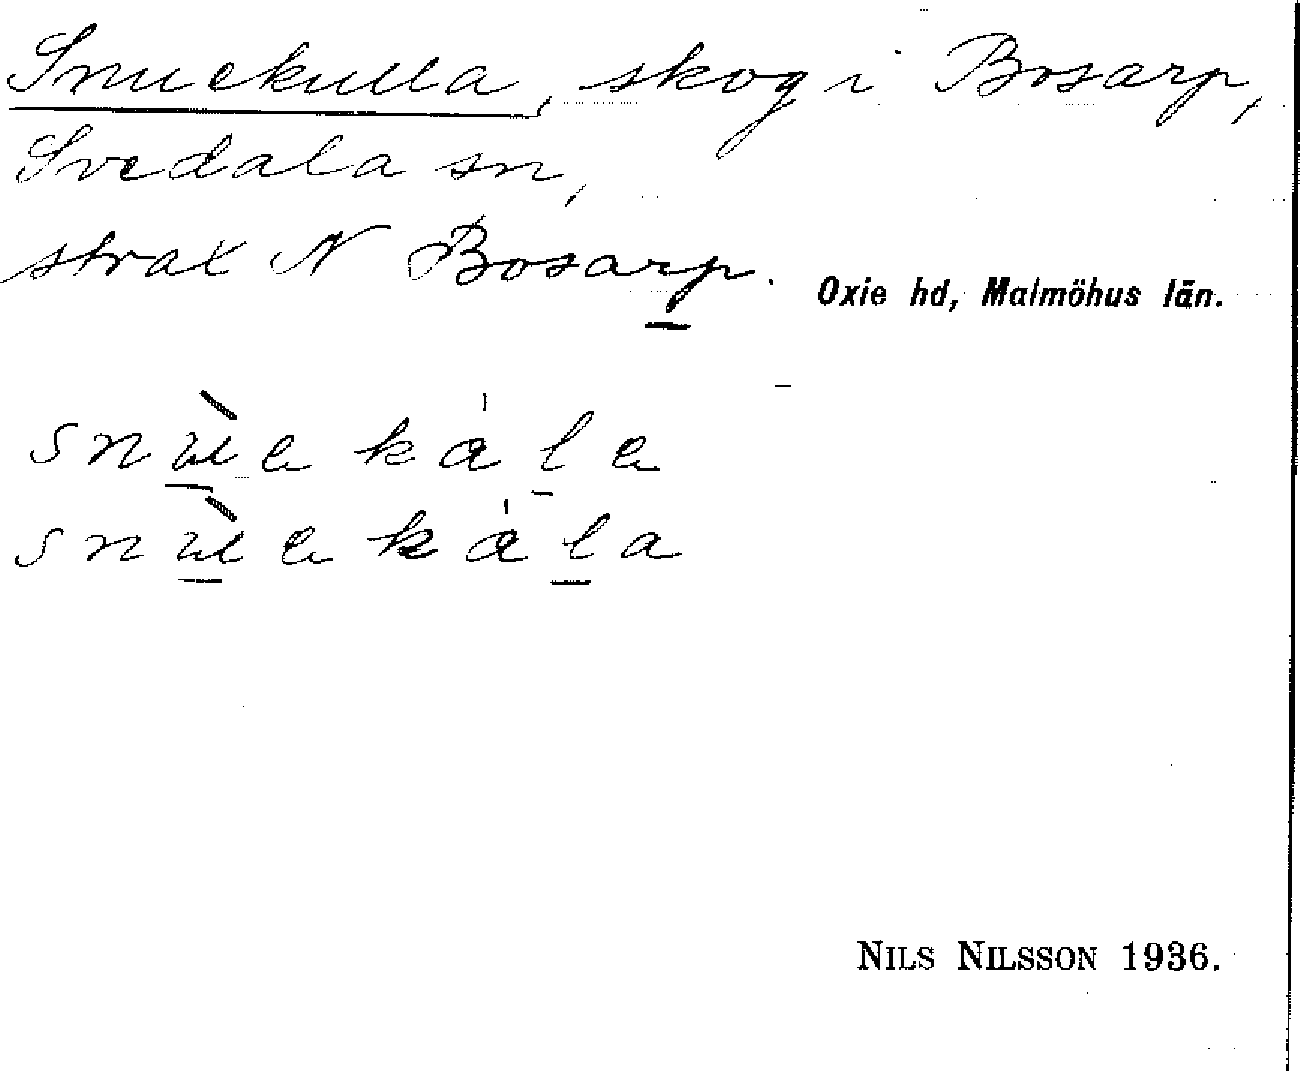 Snuekulla, skog i Bosarp,
Svedala sn,
strax N Bosarp.
Oxie hd, Malmöhus län.
snùekála
snùekála
NILS NILSSON 1936.